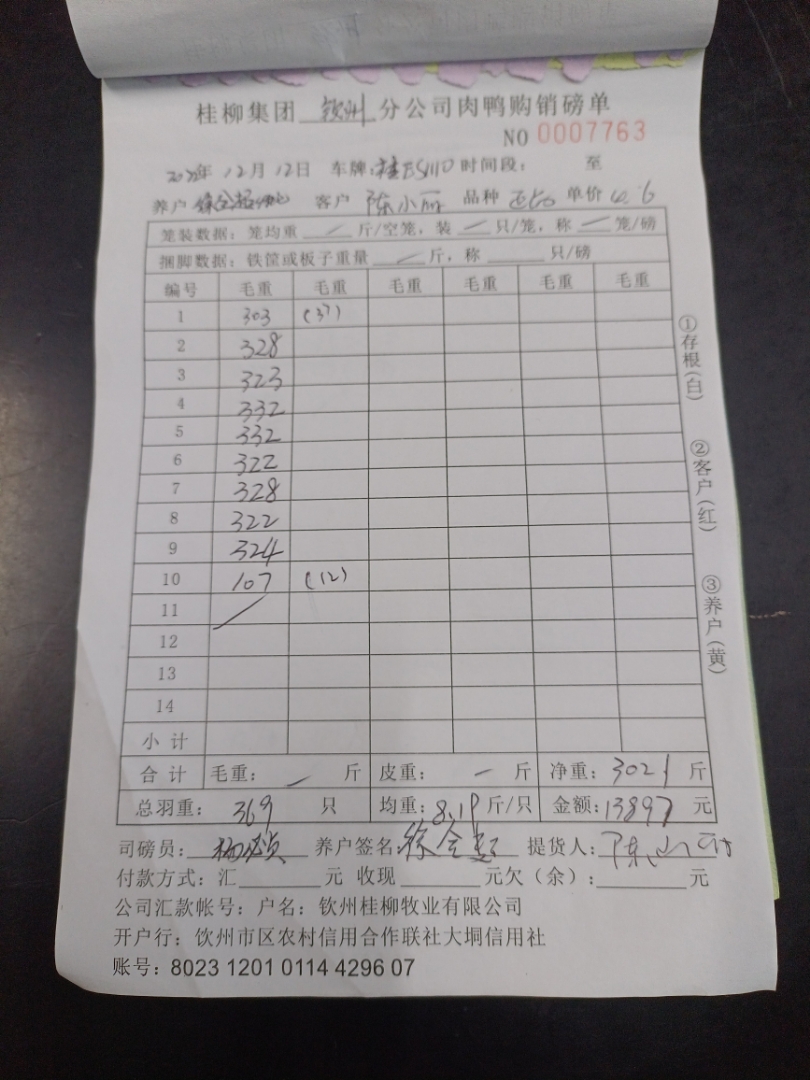 桂柳集团 钦州 分公司肉鸭购销磅单
NO 0007763
12月12日 车牌: 时间段: 至
养户 客户 陈小丽 品种 单价 4.6
笼装数据: 笼均重 / 斤/空笼, 装 / 只/笼, 称 / 笼/磅
捆脚数据: 铁筐或板子重量 / 斤, 称 只/磅
编号 毛重 毛重 毛重 毛重 毛重 毛重
1 303 (37)
2 328
3 323
4 332
5 332
6 322
7 328
8 322
9 324
10 107 (12)
11 /
12
13
14
小计
合计 毛重: / 斤 皮重: / 斤 净重: 3021 斤
总羽重: 369 只 均重: 8.19 斤/只 金额: 13897 元
司磅员: 养户签名: 提货人:
付款方式: 汇 元 收现 元欠(余): 元
公司汇款帐号: 户名: 钦州桂柳牧业有限公司
开户行: 钦州市区农村信用合作联社大垌信用社
账号: 8023 1201 0114 4296 07
①存根(白)
②客户(红)
③养户(黄)